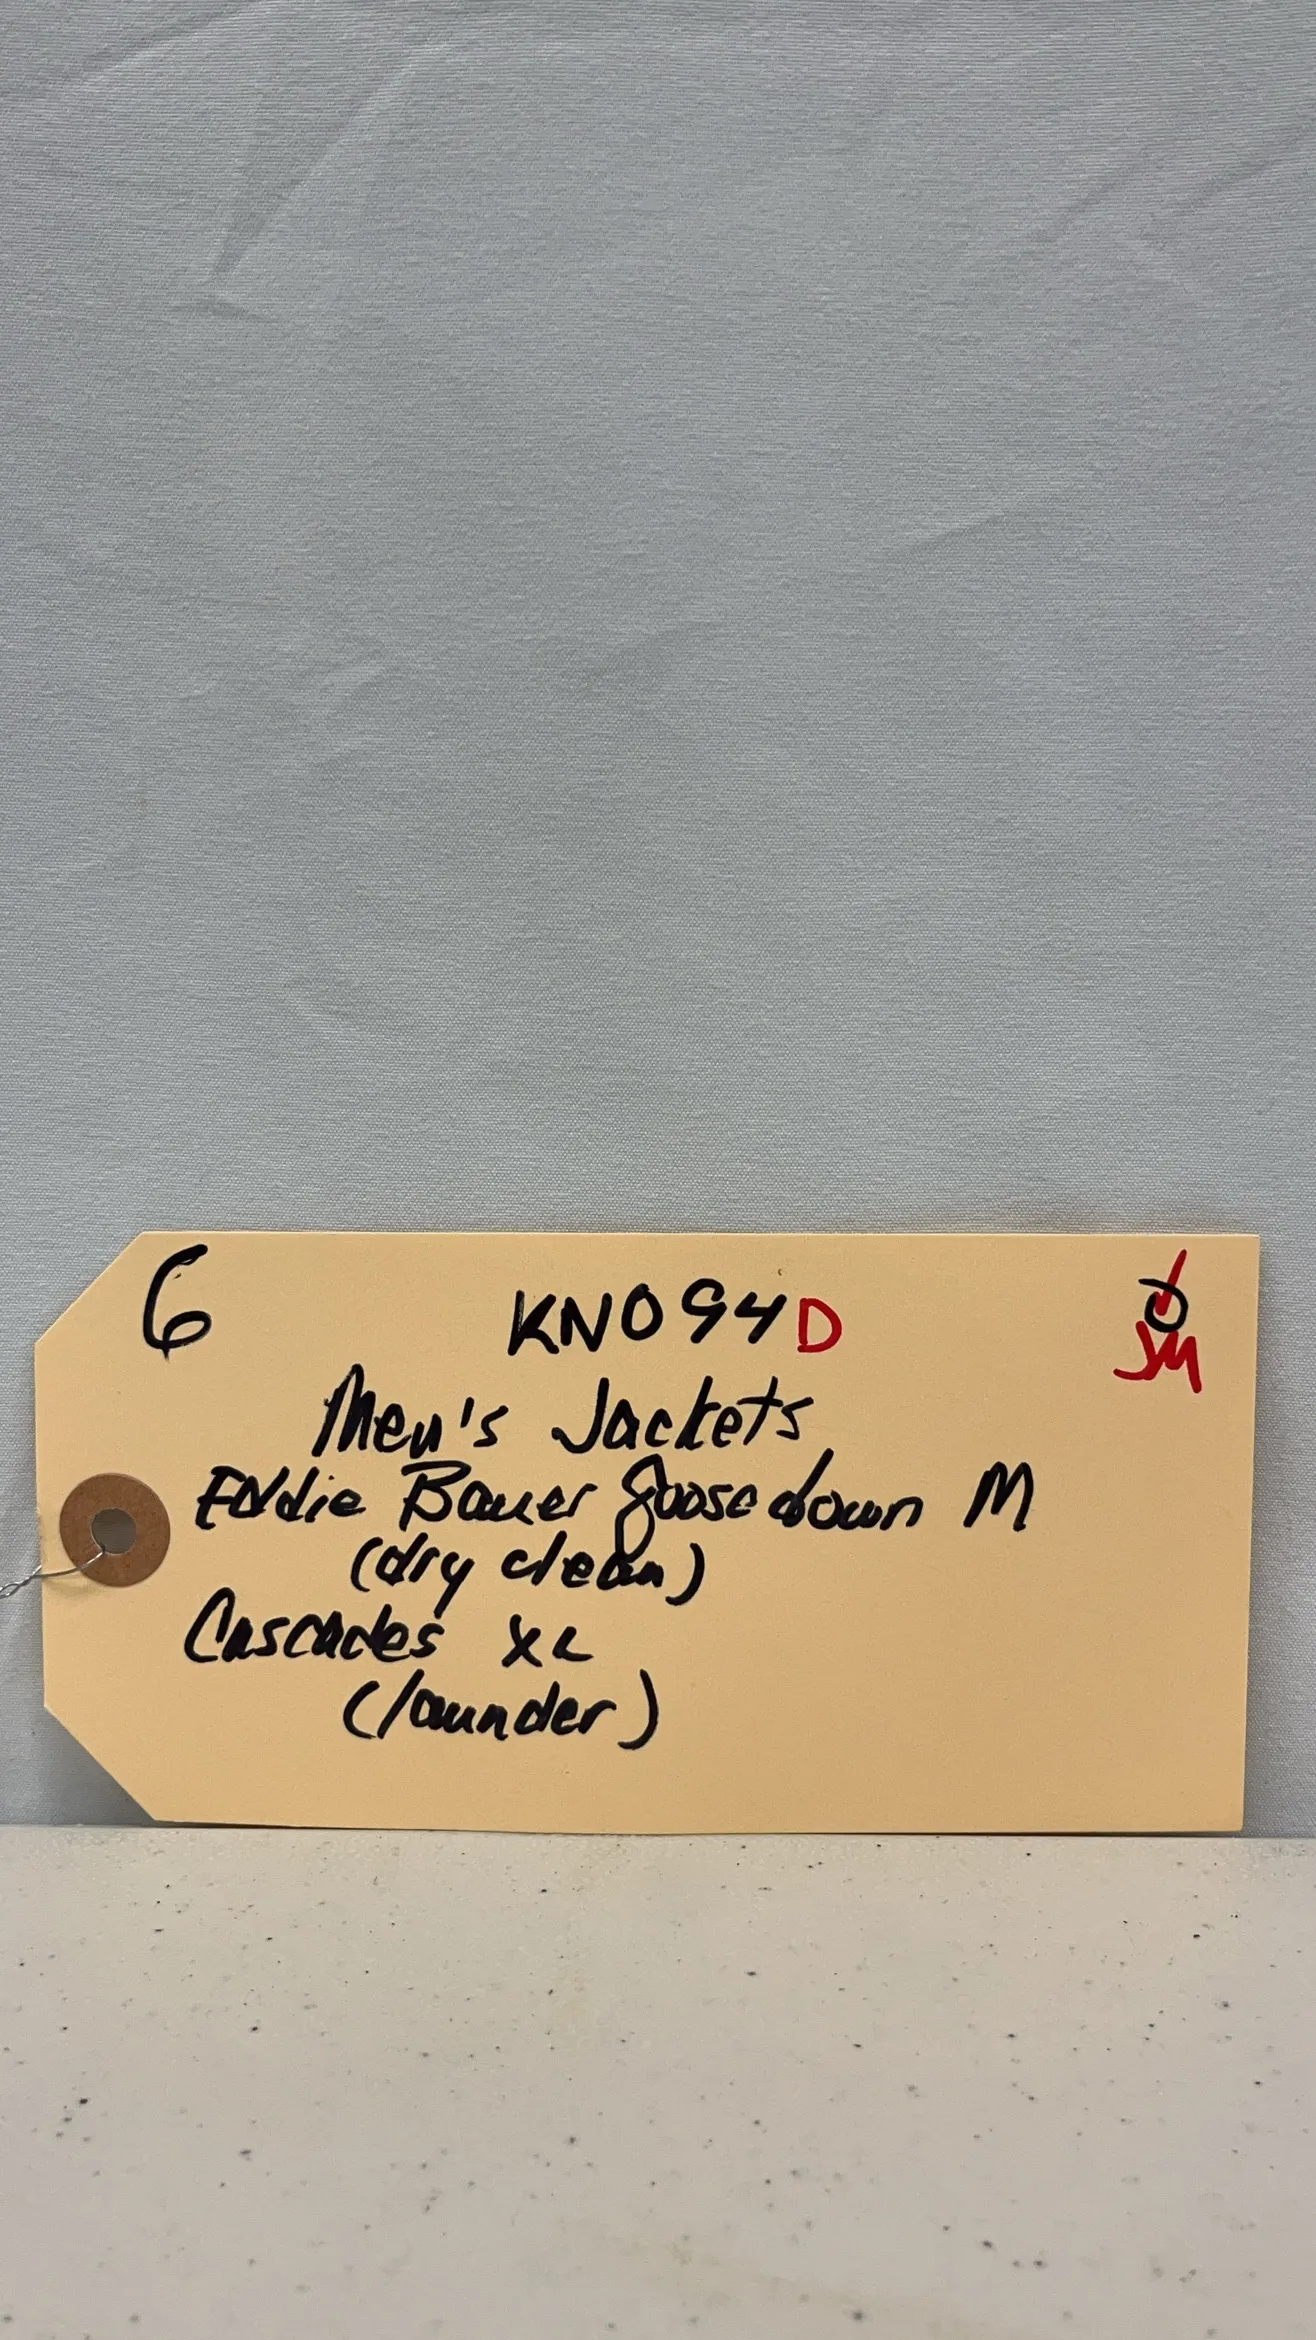 6 KN094D
JM
Men's Jackets
Eddie Bauer Goosedown M
(dry clean)
Cascades XL
(launder)